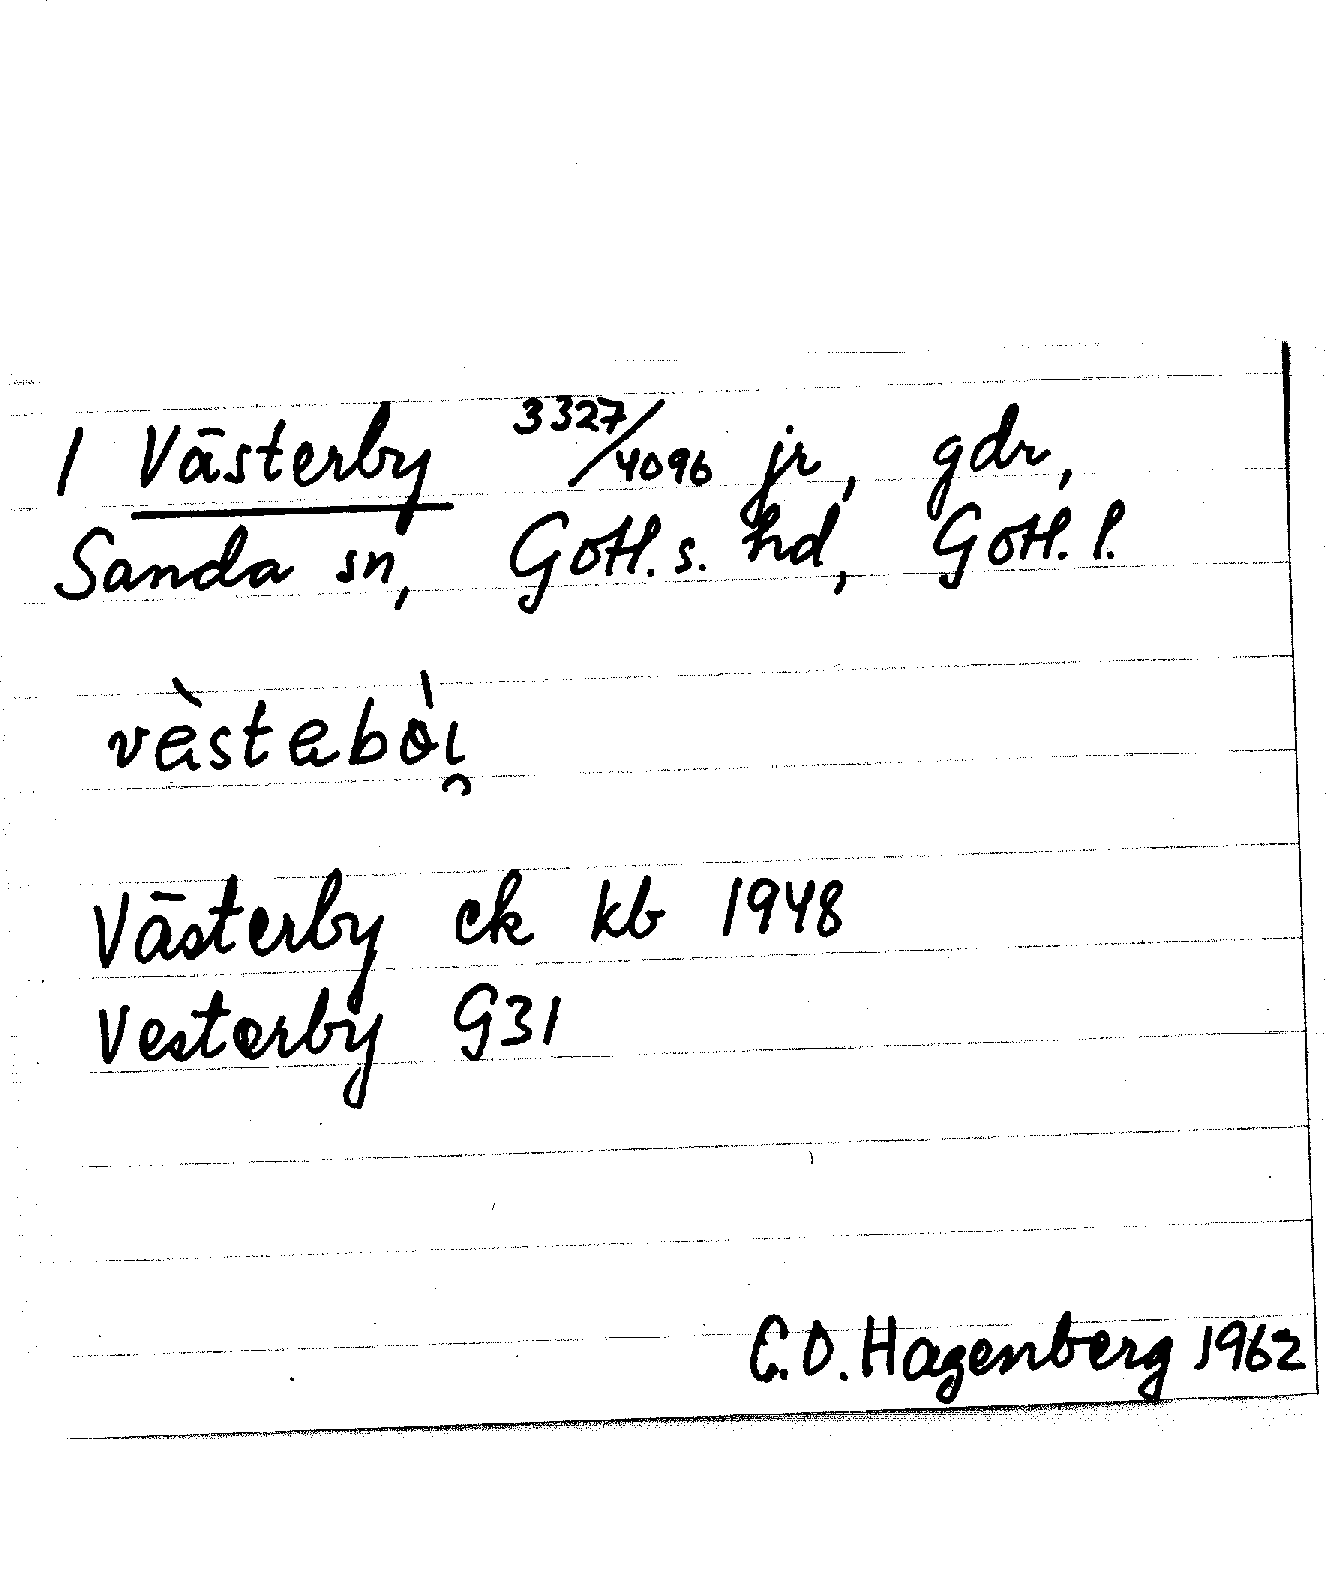 1 Västerby 3327/4096 jr, gdr,
Sanda sn, Gotl. s. hd, Gotl. l.
vèstebòi̯
Västerby ek kb 1948
Vesterby G31
C.O. Hagenberg 1962